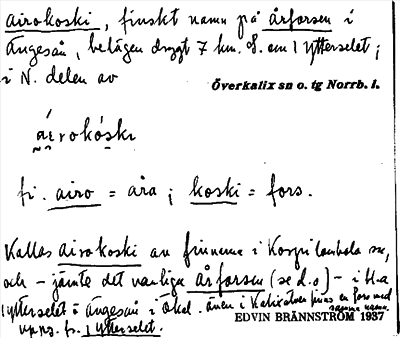 airokoski, finskt namn på årforsen i
Ängesån, belägen drygt 7 km. S. om Ytterselet;
i N. delen av
Överkalix sn o. tg Norrb. l.
áirokóski
fi. airo = åra; koski = fors.
Kallas airokoski av finnarna i Korpilombolo sn,
och – jämte det vanliga årforsen (se d.o) – i H-a
Ytterselet i Ängesån i Ökal. även i finns en fors med
samma namn.
uppg. fr. Ytterselet.
EDVIN BRÄNNSTRÖM 1937